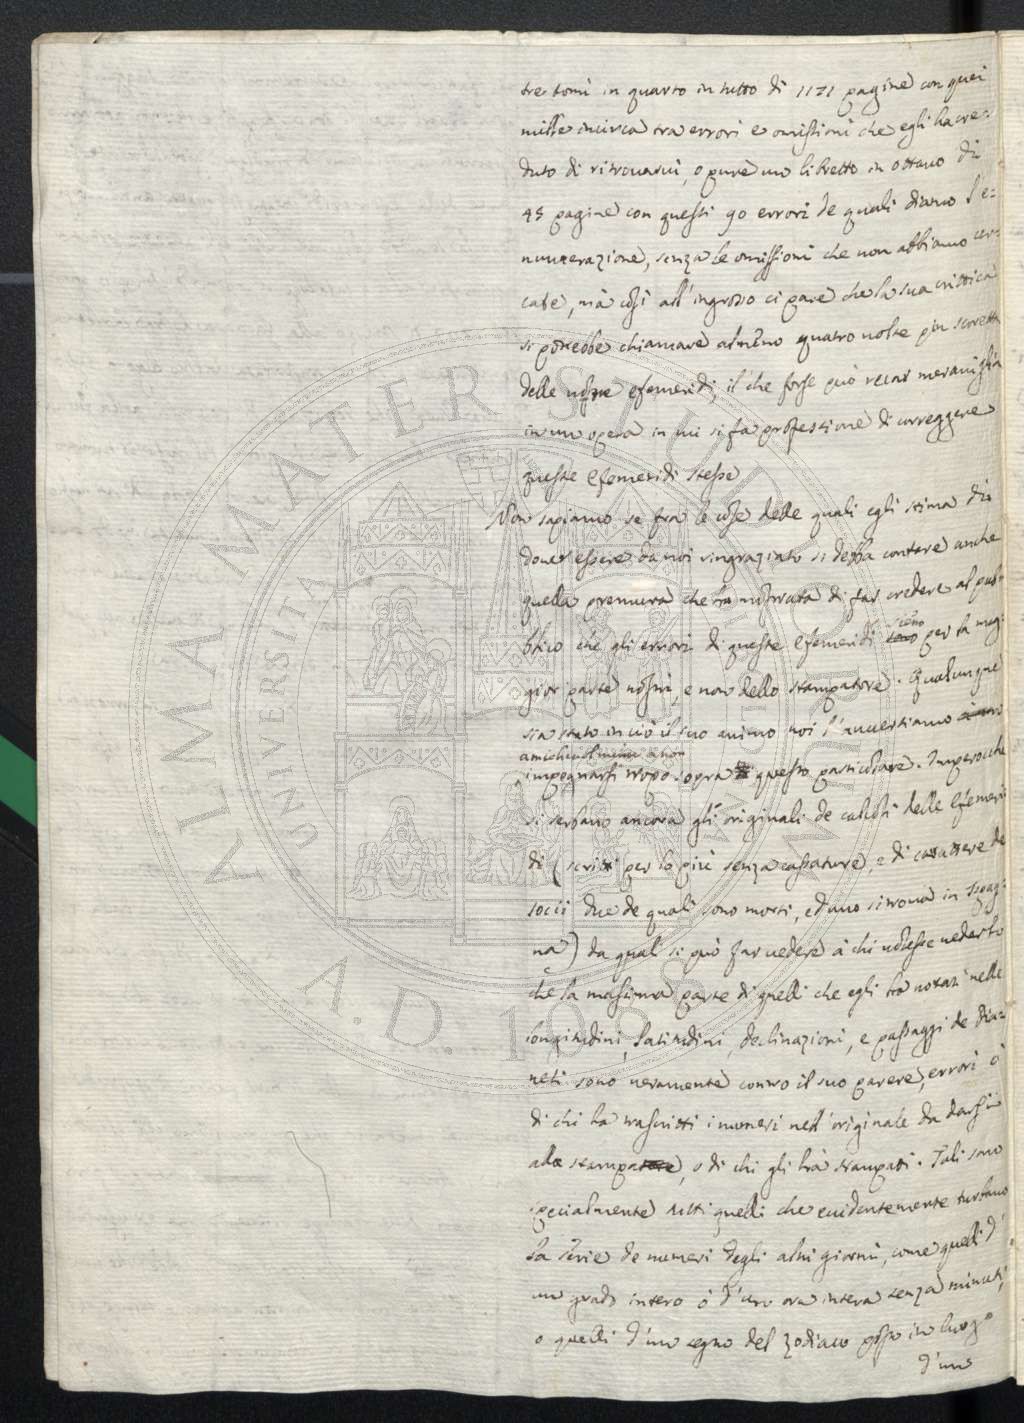 tre tomi in quarto in tutto di 1171 pagine con quei
mille incirca tra errori e omissioni che egli ha cre=
duto di ritrovarvi, o pure un libretto in ottavo di
45 pagine con questi 90 errori de quali diamo l'e=
numerazione, senza le omissioni che non abbiamo cer=
cate, mà così all'ingrosso ci pare che la sua crittica
si potrebbe chiamare almeno quatro volte piu scorretta
delle nostre efemeridi, il che forse può recar meraviglia
in un opera in cui si fa professione di correggere
queste Efemeridi stesse
Non sapiamo se fra le cose delle quali egli stima di
dover essere da noi ringraziato si debba contare anche
quella premura che ha mostrata di far credere al pub=
blico che gli errori di queste Efemeridi sieno per la mag=
gior parte nostri, e non dello stampatore. Qualunque
sia stato in ciò il suo animo noi l'avvertiamo
amichevolmente a non
impegnarsi tropo sopra questo particolare. Imperocche
si serbano ancora gli originali de calcoli delle Efemeri=
di (scritti per lo più senza cassature, e di carattere de
socii due de quali sono morti, ed uno si trova in Spag=
na) da quali si può far vedere à chi volesse vederlo
che la massima parte di quelli che egli hà notati nelle
longitudini, latitudini, declinazioni, e passaggi de Pia=
neti sono veramente contro il suo parere, errori ò
di chi ha trascritti i numeri nell'originale da darsi
alle stampe, o di chi gli hà stampati. Tali sono
specialmente tutti quelli che evidentemente turbano
la serie de numeri degli altri giorni, come quelli d'
un grado intero ò d'un ora intera senza minuti,
o quelli d'un segno del zodiaco posto in luogo
d'uno
ALMA MATER STUDIORUM
UNIVERSITÀ DI BOLOGNA
A.D. 1088